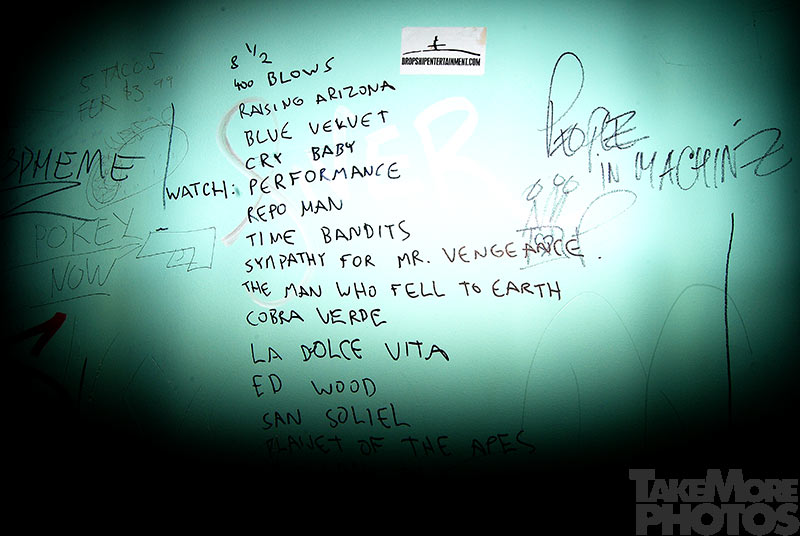 8 1/2
400 BLOWS
RAISING ARIZONA
BLUE VELVET
CRY BABY
WATCH: PERFORMANCE
REPO MAN
TIME BANDITS
SYMPATHY FOR MR. VENGEANCE.
THE MAN WHO FELL TO EARTH
COBRA VERDE
LA DOLCE VITA
ED WOOD
SAN SOLIEL
PLANET OF THE APES
DROPSHIPENTERTAINMENT.COM
5 TACOS
FER $3.99
POKEY
NOW
PEOPLE
IN MACHIN'Z
TAKEMORE
PHOTOS